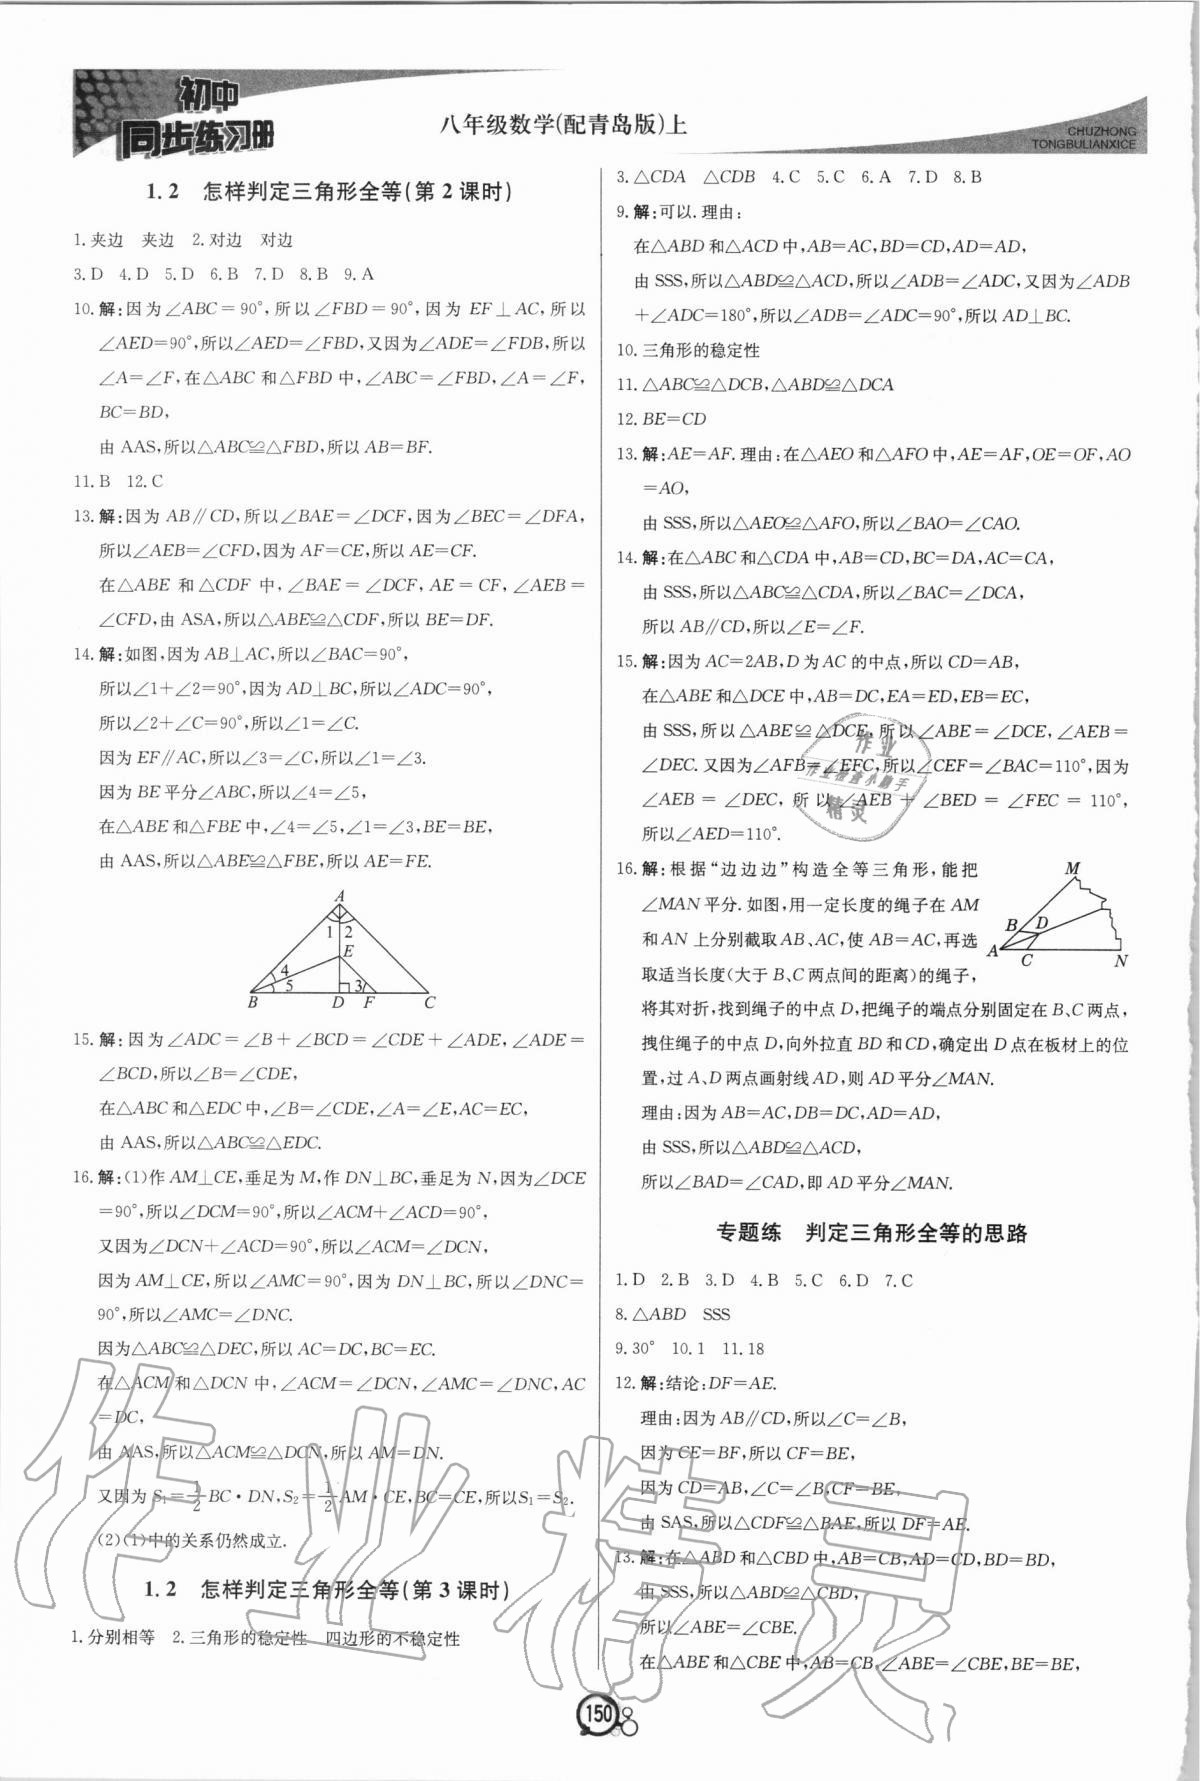 初中
同步练习册
八年级数学(配青岛版)上
CHUZHONG
TONGBULIANXICE
1.2 怎样判定三角形全等(第2课时)
1.夹边 夹边 2.对边 对边
3.D 4.D 5.D 6.B 7.D 8.B 9.A
10.解:因为∠ABC=90°,所以∠FBD=90°,因为 EF⊥AC,所以
∠AED=90°,所以∠AED=∠FBD,又因为∠ADE=∠FDB,所以
∠A=∠F,在△ABC 和△FBD 中,∠ABC=∠FBD,∠A=∠F,
BC=BD,
由 AAS,所以△ABC≌△FBD,所以 AB=BF.
11.B 12.C
13.解:因为 AB∥CD,所以∠BAE=∠DCF,因为∠BEC=∠DFA,
所以∠AEB=∠CFD,因为 AF=CE,所以 AE=CF.
在△ABE 和△CDF 中,∠BAE=∠DCF,AE=CF,∠AEB=
∠CFD,由 ASA,所以△ABE≌△CDF,所以 BE=DF.
14.解:如图,因为 AB⊥AC,所以∠BAC=90°,
所以∠1+∠2=90°,因为 AD⊥BC,所以∠ADC=90°,
所以∠2+∠C=90°,所以∠1=∠C.
因为 EF∥AC,所以∠3=∠C,所以∠1=∠3.
因为 BE平分∠ABC,所以∠4=∠5,
在△ABE和△FBE中,∠4=∠5,∠1=∠3,BE=BE,
由 AAS,所以△ABE≌△FBE,所以 AE=FE.
A
1 2
E
4
5 3
B D F C
15.解:因为∠ADC=∠B+∠BCD=∠CDE+∠ADE,∠ADE=
∠BCD,所以∠B=∠CDE,
在△ABC 和△EDC 中,∠B=∠CDE,∠A=∠E,AC=EC,
由 AAS,所以△ABC≌△EDC.
16.解:(1)作 AM⊥CE,垂足为 M,作 DN⊥BC,垂足为 N,因为∠DCE
=90°,所以∠DCM=90°,所以∠ACM+∠ACD=90°,
又因为∠DCN+∠ACD=90°,所以∠ACM=∠DCN,
因为 AM⊥CE,所以∠AMC=90°,因为 DN⊥BC,所以∠DNC=
90°,所以∠AMC=∠DNC.
因为△ABC≌△DEC,所以 AC=DC,BC=EC.
在△ACM 和△DCN 中,∠ACM=∠DCN,∠AMC=∠DNC,AC
=DC,
由 AAS,所以△ACM≌△DCN,所以 AM=DN.
又因为 S₁=1/2 BC·DN,S₂=1/2 AM·CE,BC=CE,所以S₁=S₂.
(2)(1)中的关系仍然成立.
1.2 怎样判定三角形全等(第3课时)
1.分别相等 2.三角形的稳定性 四边形的不稳定性
3.△CDA △CDB 4.C 5.C 6.A 7.D 8.B
9.解:可以.理由:
在△ABD 和△ACD 中,AB=AC,BD=CD,AD=AD,
由 SSS,所以△ABD≌△ACD,所以∠ADB=∠ADC,又因为∠ADB
+∠ADC=180°,所以∠ADB=∠ADC=90°,所以 AD⊥BC.
10.三角形的稳定性
11.△ABC≌△DCB,△ABD≌△DCA
12.BE=CD
13.解:AE=AF.理由:在△AEO 和△AFO 中,AE=AF,OE=OF,AO
=AO,
由 SSS,所以△AEO≌△AFO,所以∠BAO=∠CAO.
14.解:在△ABC 和△CDA 中,AB=CD,BC=DA,AC=CA,
由 SSS,所以△ABC≌△CDA,所以∠BAC=∠DCA,
所以 AB∥CD,所以∠E=∠F.
15.解:因为 AC=2AB,D 为 AC 的中点,所以 CD=AB,
在△ABE 和△DCE 中,AB=DC,EA=ED,EB=EC,
由 SSS,所以△ABE≌△DCE,所以∠ABE=∠DCE,∠AEB=
∠DEC.又因为∠AFB=∠EFC,所以∠CEF=∠BAC=110°,因为
∠AEB=∠DEC,所以∠AEB+∠BED=∠FEC=110°,
所以∠AED=110°.
16.解:根据“边边边”构造全等三角形,能把
∠MAN平分.如图,用一定长度的绳子在 AM
和 AN 上分别截取 AB、AC,使 AB=AC,再选
取适当长度(大于 B、C 两点间的距离)的绳子,
将其对折,找到绳子的中点 D,把绳子的端点分别固定在 B、C 两点,
拽住绳子的中点 D,向外拉直 BD 和 CD,确定出 D 点在板材上的位
置,过 A、D 两点画射线 AD,则 AD 平分∠MAN.
理由:因为 AB=AC,DB=DC,AD=AD,
由 SSS,所以△ABD≌△ACD,
所以∠BAD=∠CAD,即 AD 平分∠MAN.
M
B D
A C N
专题练 判定三角形全等的思路
1.D 2.B 3.D 4.B 5.C 6.D 7.C
8.△ABD SSS
9.30° 10.1 11.18
12.解:结论:DF=AE.
理由:因为 AB∥CD,所以∠C=∠B,
因为 CE=BF,所以 CF=BE,
因为 CD=AB,∠C=∠B,CF=BE,
由 SAS,所以△CDF≌△BAE,所以 DF=AE.
13.解:在△ABD 和△CBD 中,AB=CB,AD=CD,BD=BD,
由 SSS,所以△ABD≌△CBD,
所以∠ABE=∠CBE.
在△ABE 和△CBE 中,AB=CB,∠ABE=∠CBE,BE=BE,
150
作业
作业检查小助手
精灵
作业精灵